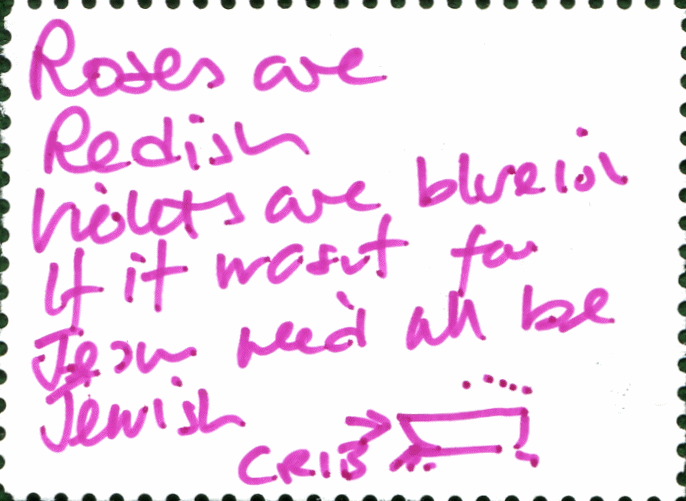 Roses are
Redish
Violets are blueish
If it wasnt for
Jesus weed all be
Jewish
CRIB